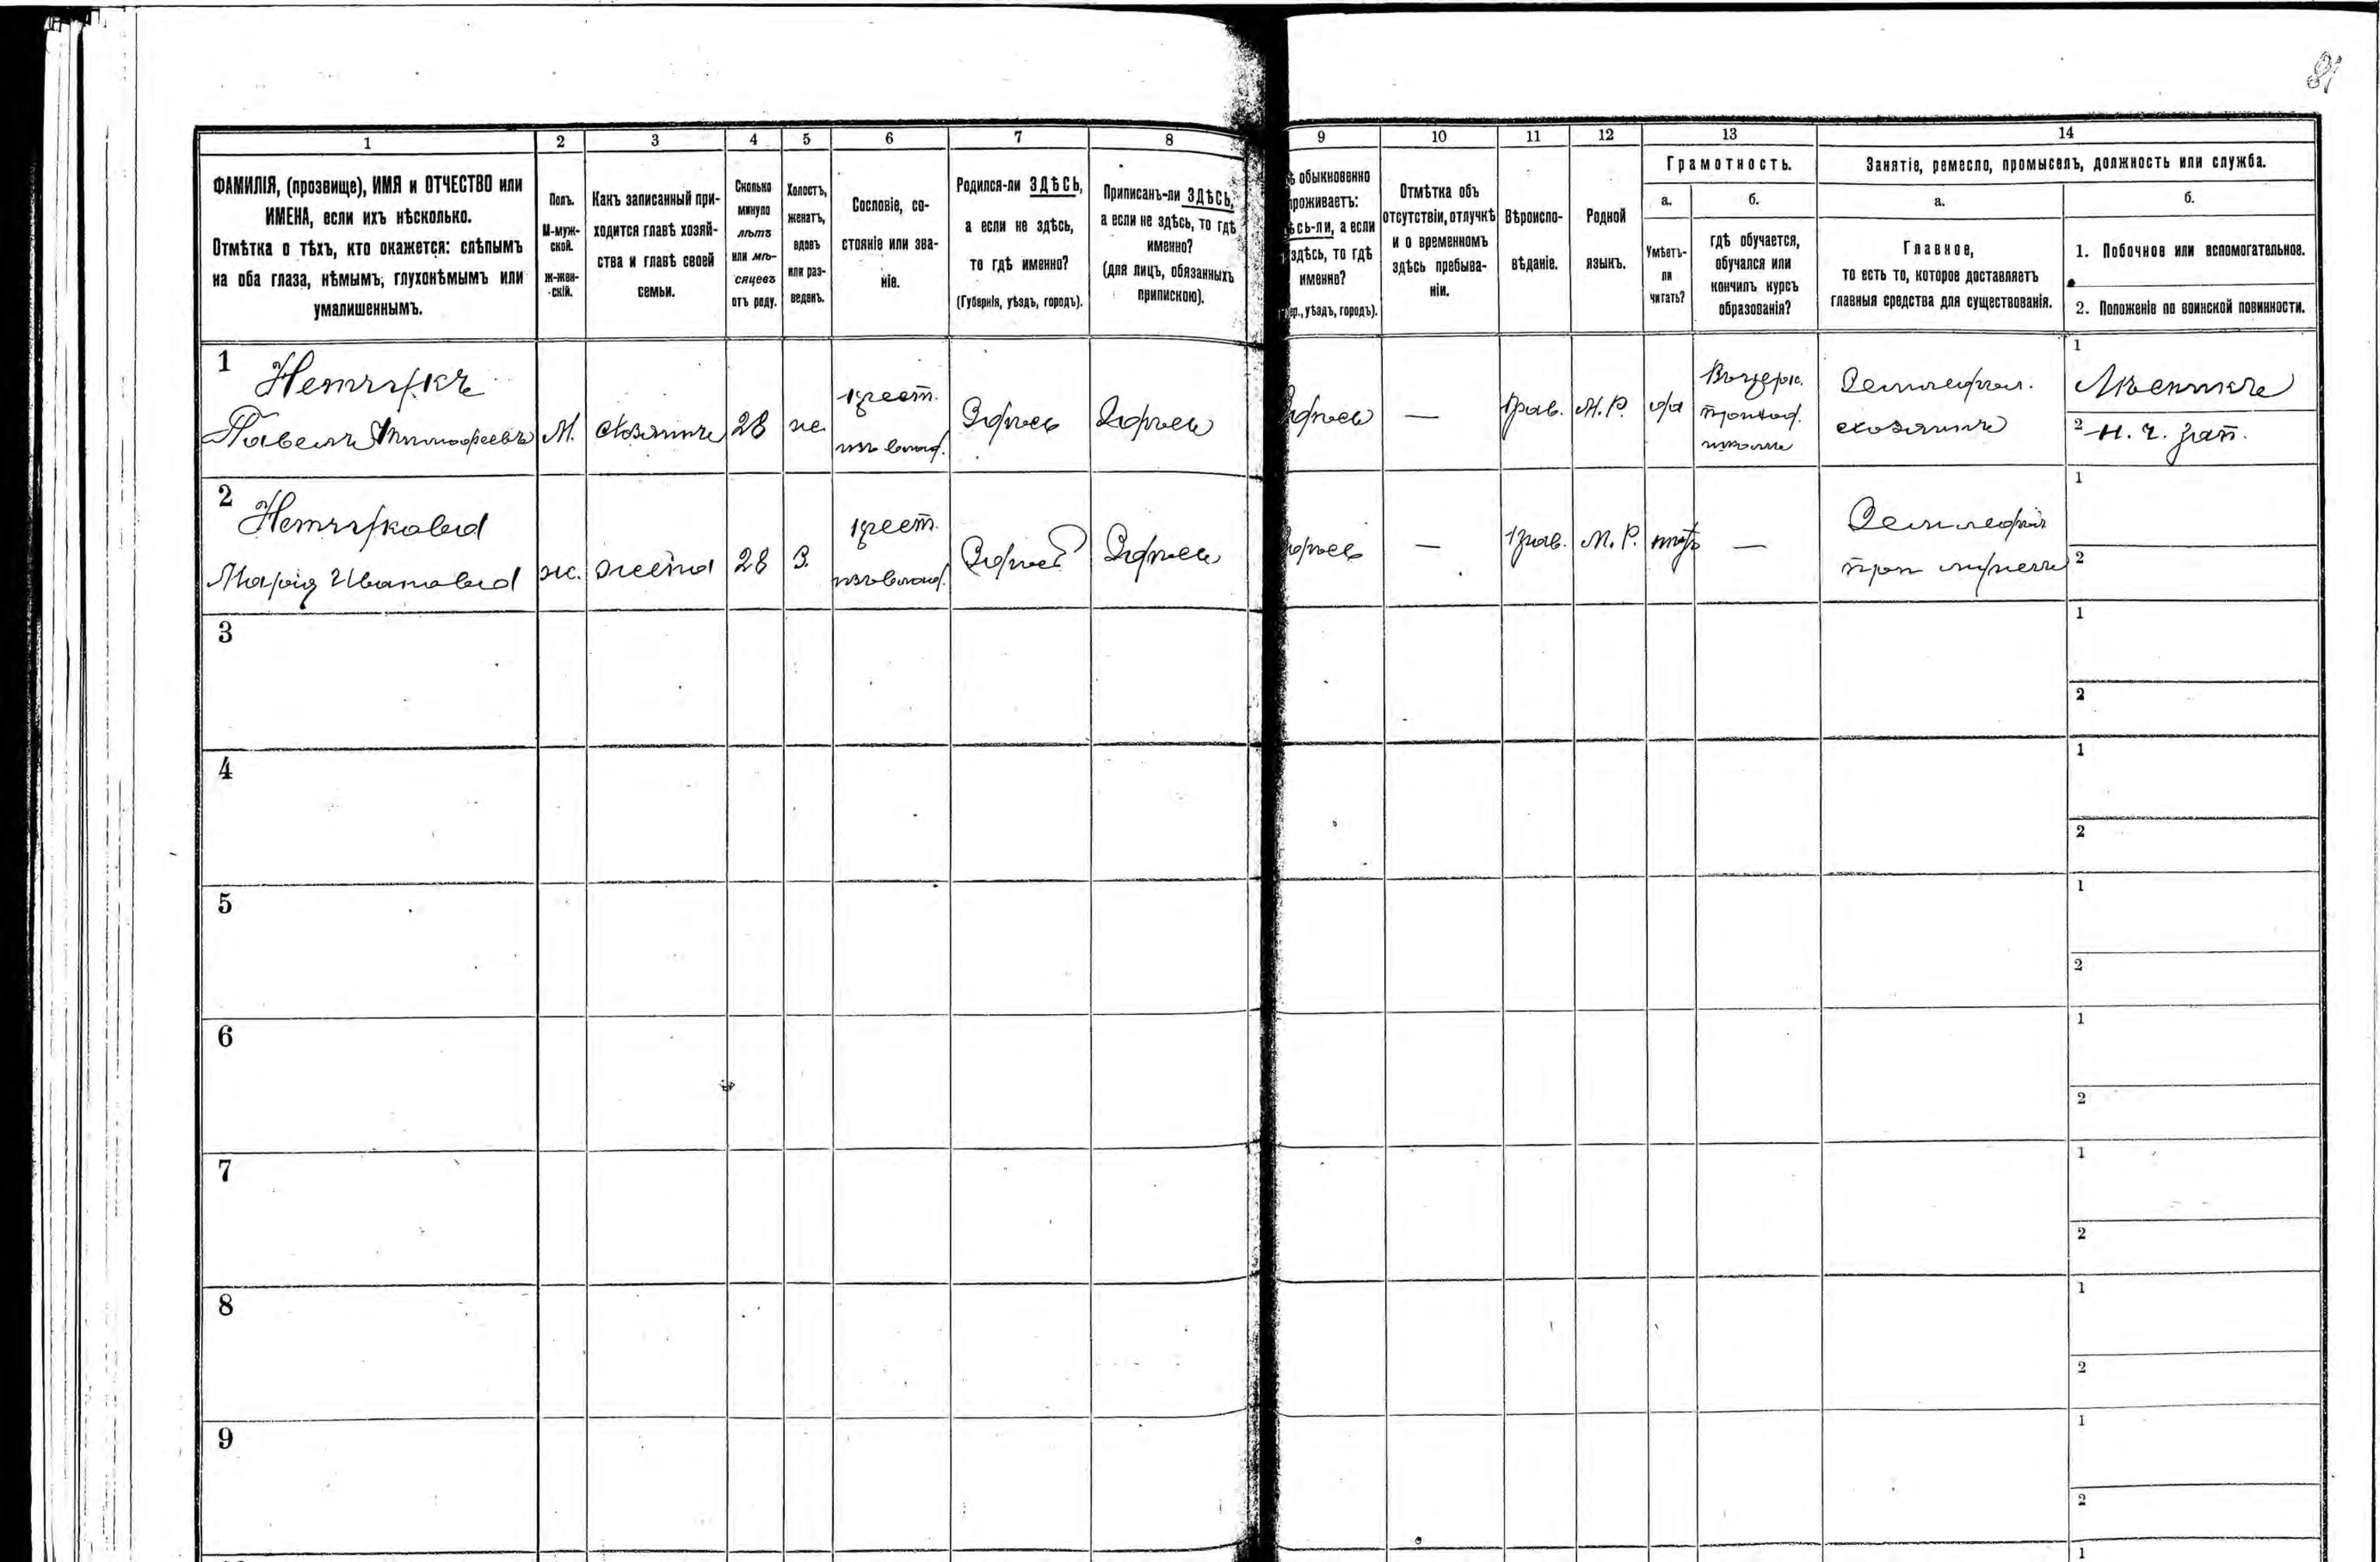 81
1
2
3
4
5
6
7
8
9
10
11
12
13
14
ФАМИЛІЯ, (прозвище), ИМЯ и ОТЧЕСТВО или
ИМЕНА, если ихъ нѣсколько.
Отмѣтка о тѣхъ, кто окажется: слѣпымъ
на оба глаза, нѣмымъ, глухонѣмымъ или
умалишеннымъ.
Полъ.
М-муж-
ской.
ж-жен-
скій.
Какъ записанный при-
ходится главѣ хозяй-
ства и главѣ своей
семьи.
Сколько
минуло
лѣтъ
или мѣ-
сяцевъ
отъ роду.
Холостъ,
женатъ,
вдовъ
или раз-
веденъ.
Сословіе, со-
стояніе или зва-
ніе.
Родился-ли ЗДѢСЬ,
а если не здѣсь,
то гдѣ именно?
(Губернія, уѣздъ, городъ).
Приписанъ-ли ЗДѢСЬ,
а если не здѣсь, то гдѣ
именно?
(для лицъ, обязанныхъ
припискою).
ѣ обыкновенно
проживаетъ:
ѣсь-ли, а если
здѣсь, то гдѣ
именно?
бер., уѣздъ, городъ).
Отмѣтка объ
отсутствіи, отлучкѣ
и о временномъ
здѣсь пребыва-
ніи.
Вѣроиспо-
вѣданіе.
Родной
языкъ.
Грамотность.
а.
б.
Умѣетъ-
ли
читать?
гдѣ обучается,
обучался или
кончилъ курсъ
образованія?
Занятіе, ремесло, промыселъ, должность или служба.
а.
б.
Главное,
то есть то, которое доставляетъ
главныя средства для существованія.
1. Побочное или вспомогательное.
2. Положеніе по воинской повинности.
1
Павелъ Тимофеевъ
М.
хозяинъ
28
ж.
крест.
изъ влад.
Здѣсь
Здѣсь
Здѣсь
—
прав.
М. Р.
да
приход.
школа
Землед.
хозяинъ
1
2
н. ч. зап.
2
Марія Иванова
ж.
жена
28
З.
крест.
изъ влад.
Здѣсь
Здѣсь
Здѣсь
—
прав.
М. Р.
нѣтъ
—
Землед.
при мужѣ
1
2
3
1
2
4
1
2
5
1
2
6
1
2
7
1
2
8
1
2
9
1
2
1